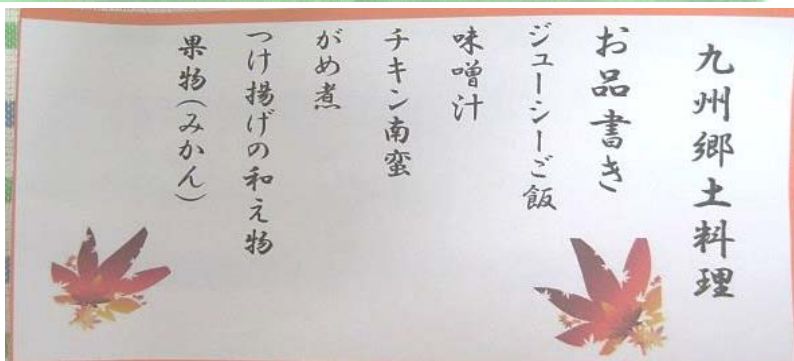 九州郷土料理
お品書き
ジューシーご飯
味噌汁
チキン南蛮
がめ煮
つけ揚げの和え物
果物(みかん)